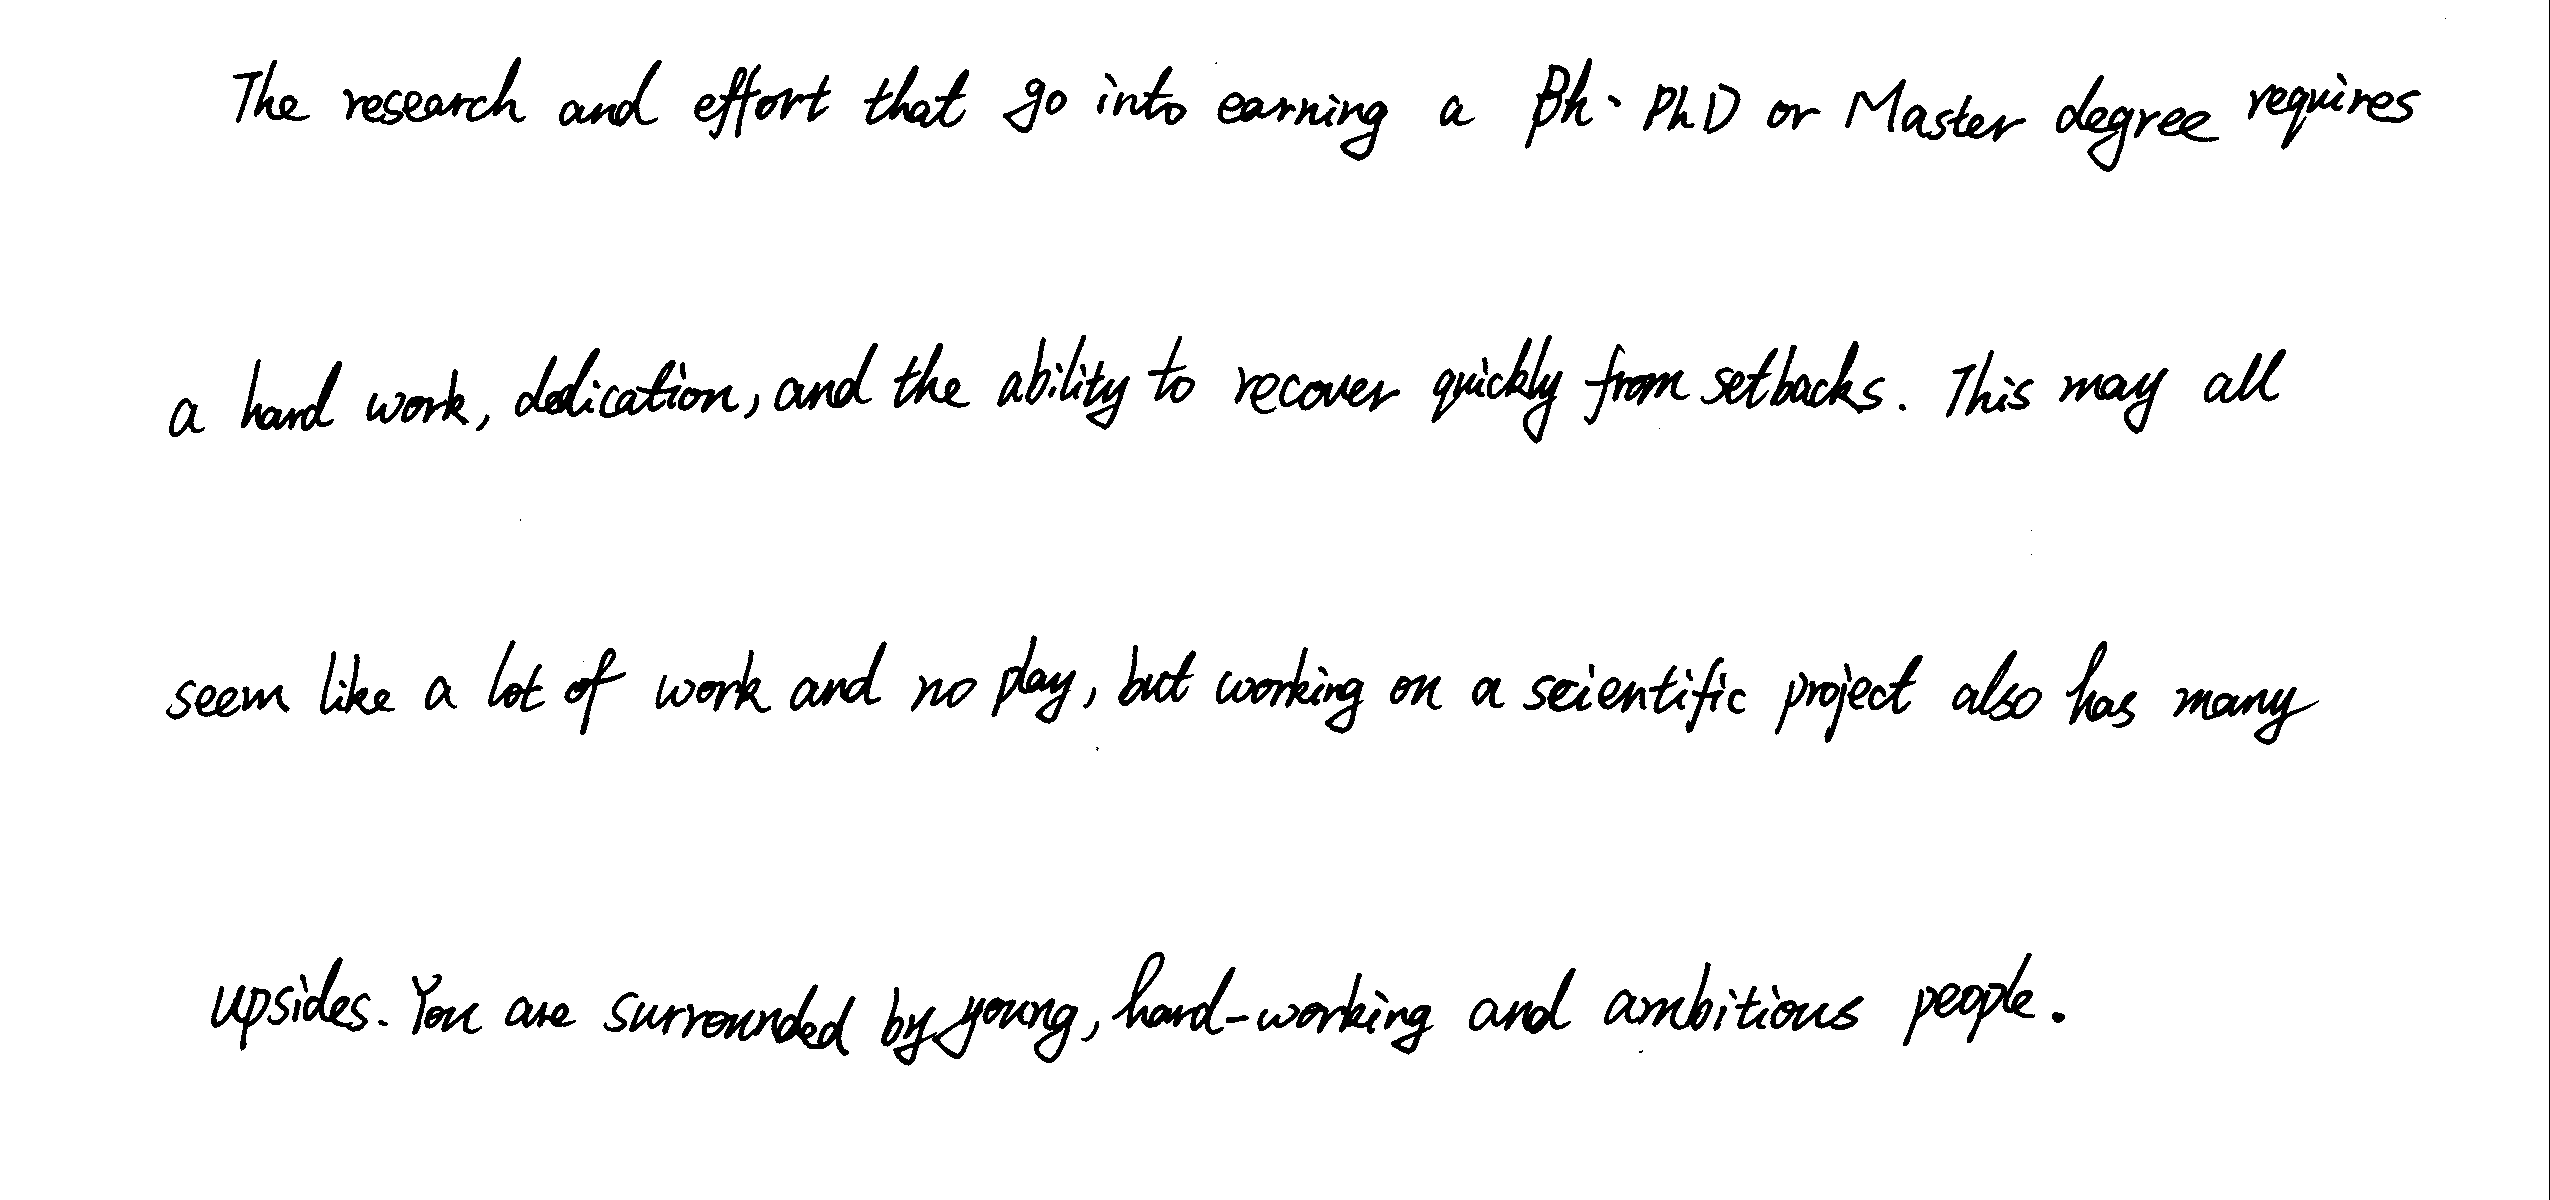 The research and effort that go into earning a Ph. PhD or Master degree requires
a hard work, dedication, and the ability to recover quickly from setbacks. This may all
seem like a lot of work and no play, but working on a scientific project also has many
upsides. You are surrounded by young, hard-working and ambitious people.